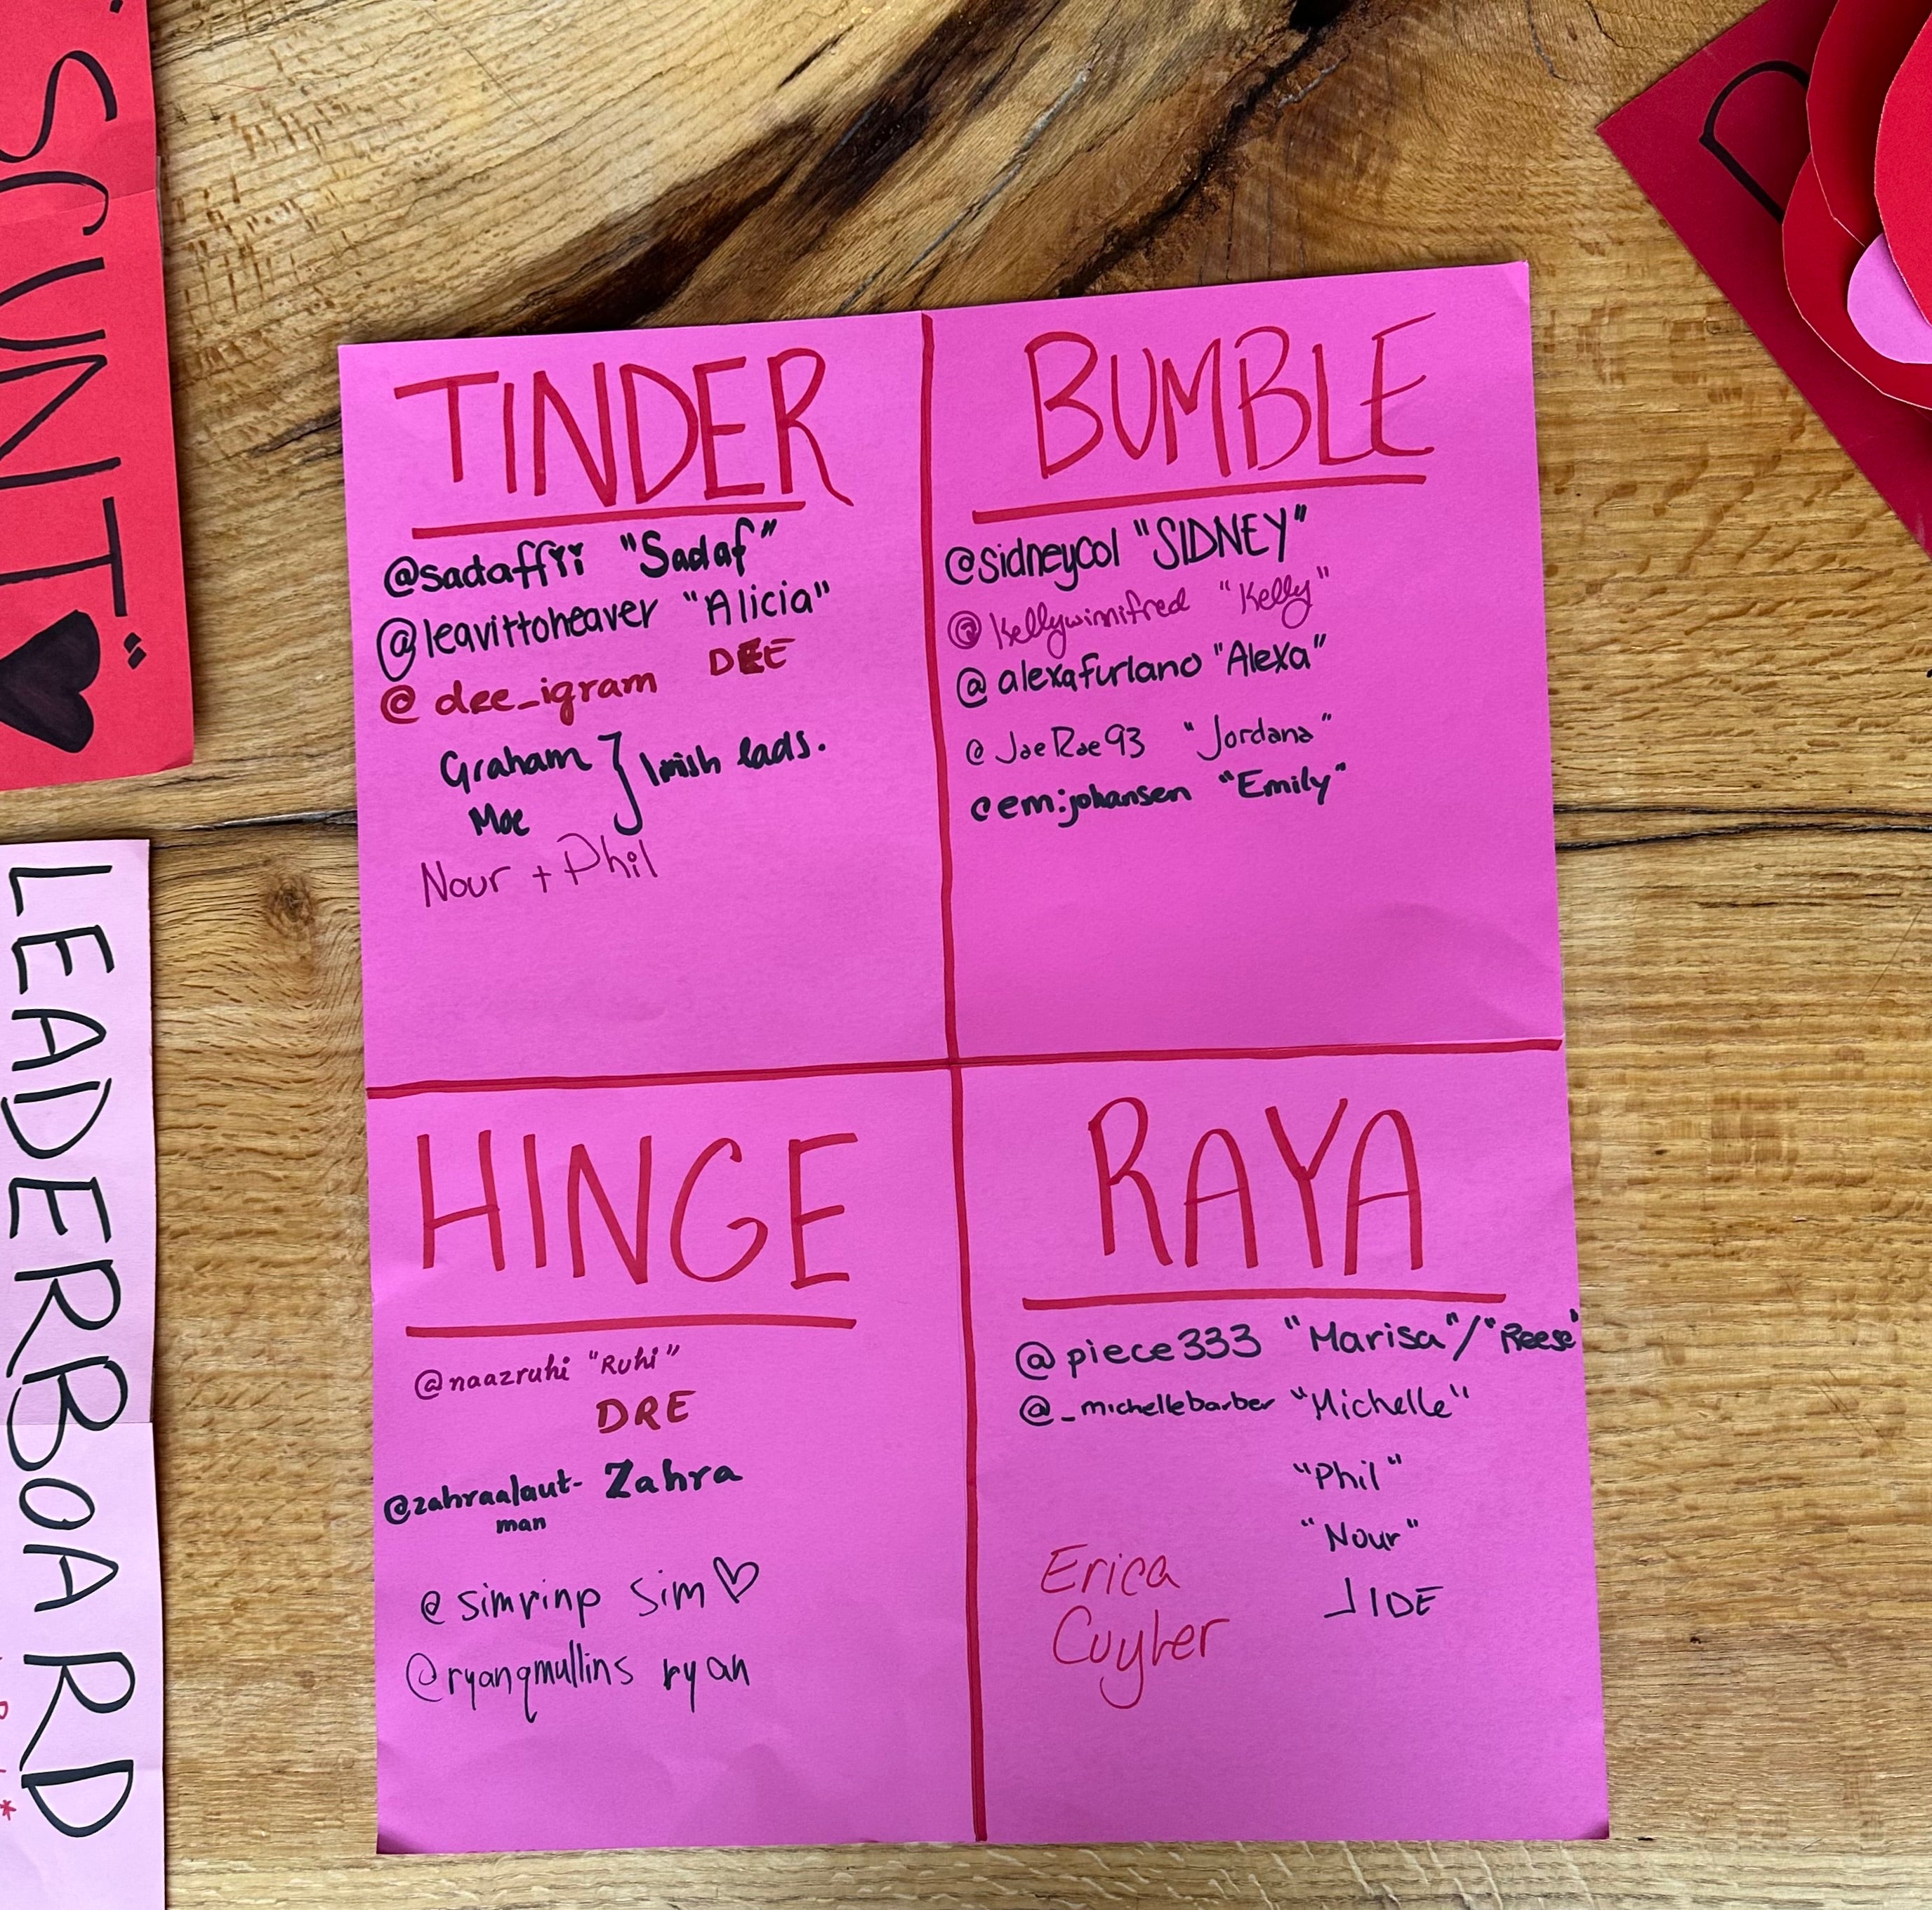 SCUNT"
LEADERBOARD
TINDER
@sadaffii "Sadaf"
@leavittoheaver "Alicia"
@dee_igram DEE
Graham
Moe
Irish lads.
Nour + Phil
BUMBLE
@sidneycol "SIDNEY"
@kellywinnifred "Kelly"
@alexafurlano "Alexa"
@JaeRae93 "Jordana"
@emijohansen "Emily"
HINGE
@naazruhi "Ruhi"
DRE
@zahraalaut- Zahra
man
@simrinp Sim♡
@ryanqmullins ryan
RAYA
@piece333 "Marisa"/"Reese"
@_michellebarber "Michelle"
"Phil"
"Nour"
JIDE
Erica
Cuyler